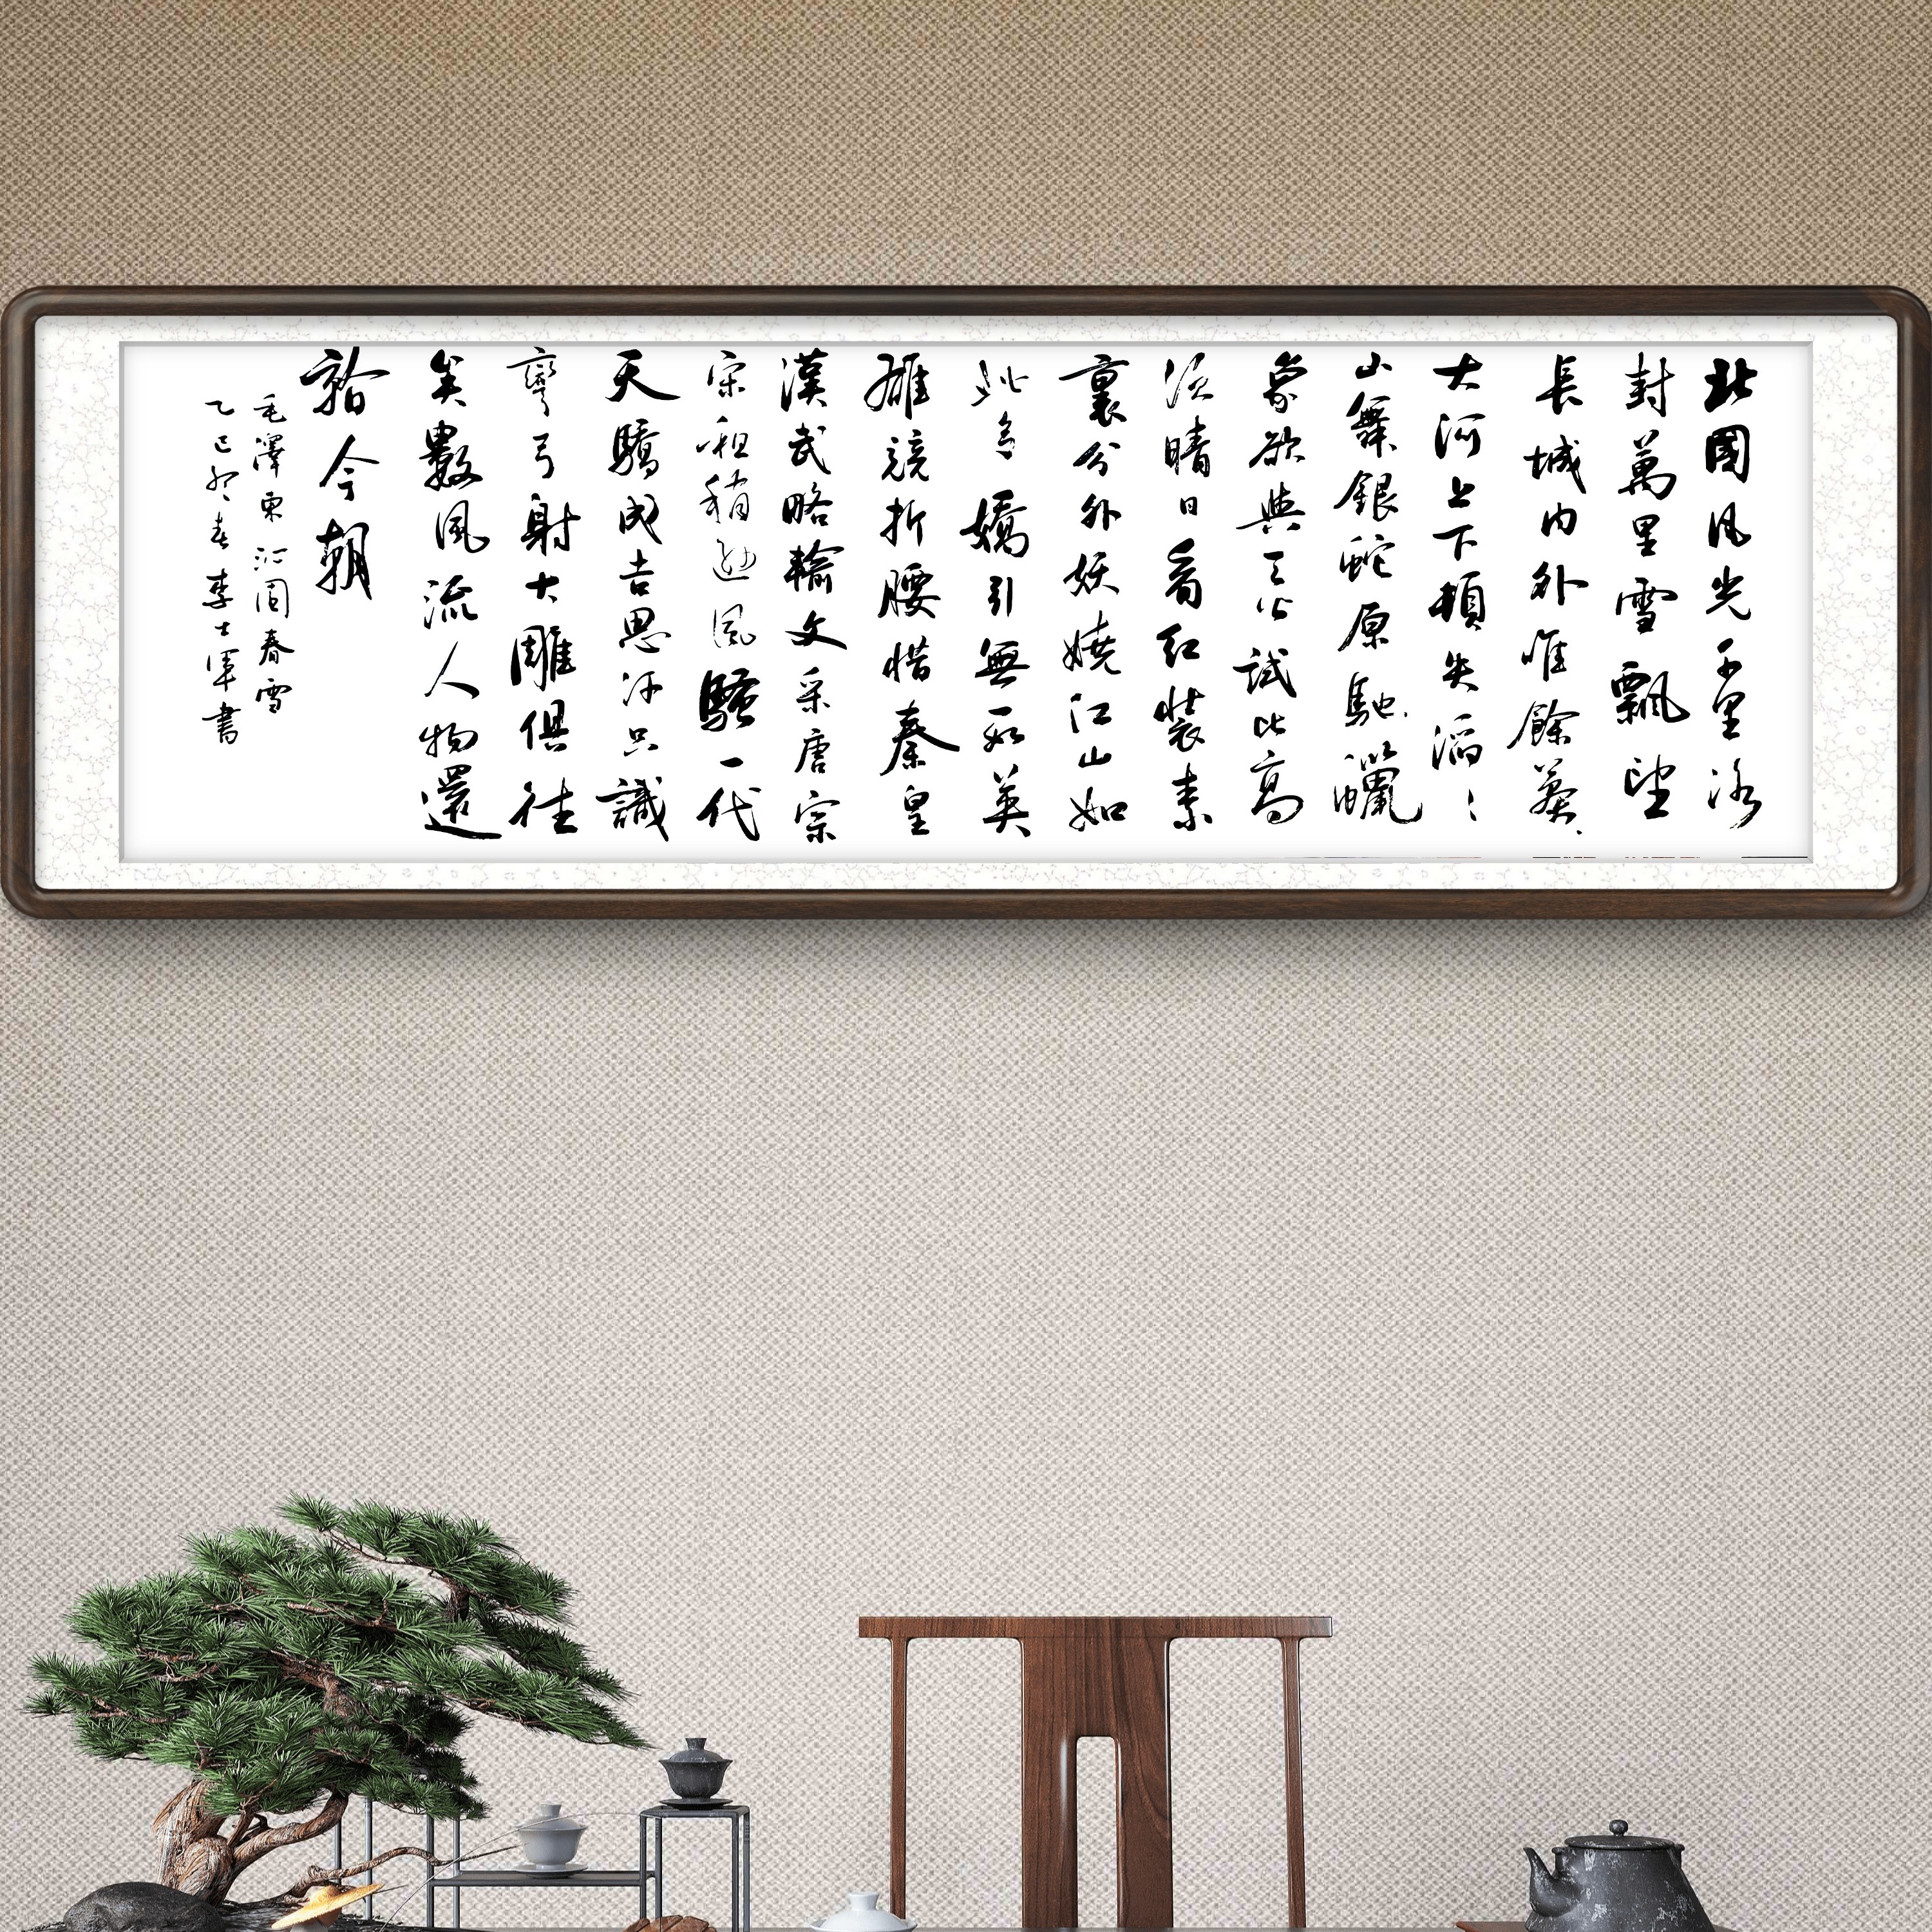 北國風光千里冰
封萬里雪飄望
長城内外唯餘莽〻
大河上下頓失滔〻
山舞銀蛇原馳蠟
象欲與天公試比高
須晴日看紅裝素
裹分外妖嬈江山如
此多嬌引無數英
雄競折腰惜秦皇
漢武略輸文采唐宗
宋祖稍遜風騷一代
天驕成吉思汗只識
彎弓射大雕俱往
矣數風流人物還
看今朝
毛澤東沁園春雪
乙巳初春李士軍書